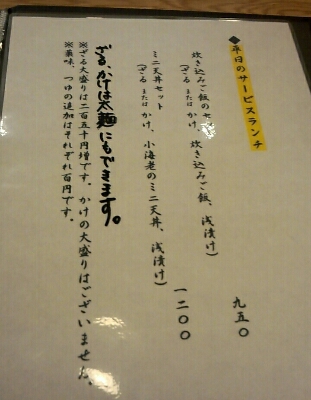 ◆平日のサービスランチ
炊き込みご飯のセット
(ざる または かけ、炊き込みご飯、浅漬け)
九五〇
ミニ天丼セット
(ざる または かけ、小海老のミニ天丼、浅漬け)
一二〇〇
ざる、かけは太麺にもできます。
※ざる大盛りは二百五十円増です。かけの大盛りはございません。
※薬味、つゆの追加はそれぞれ百円です。